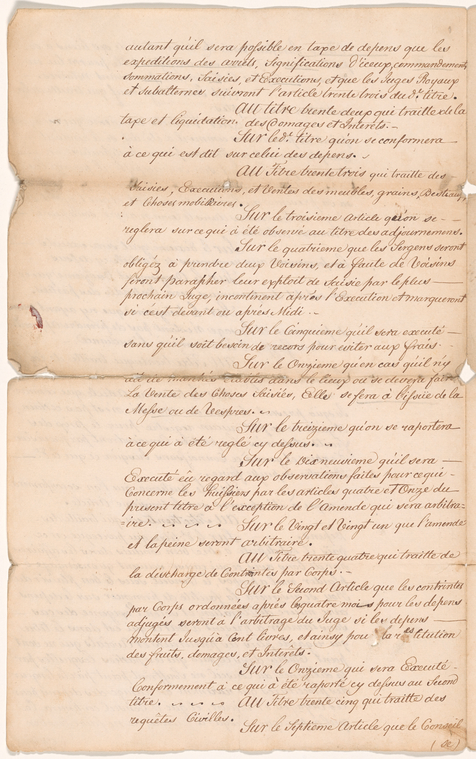 autant qu'il sera possible en taxe de depens que les
expeditions des arrets, Significations d'iceux, commandements,
sommations, Saisies, et Executions, et que les Juges Royaux
et subalternes suivront l'article trente trois du d.t titre.
Au titre trente deux qui traitte de la
taxe et liquidation des Domages et Interets.-
Sur le d.t titre qu'on se conformera
à ce qui est dit sur celui des depens.
Au Titre trente trois qui traitte des
Saisies, Executions, et Ventes des meubles, grains, Bestiaux,
et Choses mobiliaires.
Sur le troisieme Article qu'on se
reglera sur ce qui à été observé au titre des adjournemens.
Sur le quatrieme que les Sergens seront
obligéz à prendre deux Voisins, et à faute de Voisins
feront parapher leur exploit de Saisie par le plus
prochain Juge, incontinent après l'Execution et marqueront
si c'est devant ou après Midi.-
Sur le Cinquieme qu'il sera executé
sans qu'il soit besoin de recors pour eviter aux frais.
Sur le Onzieme qu'en cas qu'il n'y
ait de marchés établis dans le lieux ou se devroit faire
La Vente des Choses Saisiés, Elle se fera à l'issüe de la
Messe ou de Vespres.
Sur le treizieme qu'on se raportera
à ce qui à été reglé cy dessus.
Sur le Dixneuvieme qu'il sera
Executé eu regard aux observations faites pour ce qui
Concerne les Huissiers par les articles quatre et Onze du
present titre à l'exception de l'Amende qui sera arbitra-
ire.
Sur le Vingt et Vingt un que l'amende
et la peine seront arbitraire.
Au Titre trente quatre qui traitte de
la décharge de Contraintes par Corps.-
Sur le Second Article que les contraintes
par Corps ordonnées après les quatre mois pour les depens
adjugés seront à l'arbitrage du Juge si les depens
montent jusqu'à Cent livres, et ainsy pour la restitution
des fruits, domages, et Interets.
Sur le Onzieme qui sera Executé
Conformement à ce qui à été raporté cy dessus au Second
titre.
Au Titre trente cinq qui traitte des
requêtes Civilles.
Sur le Septieme Article que le Conseil